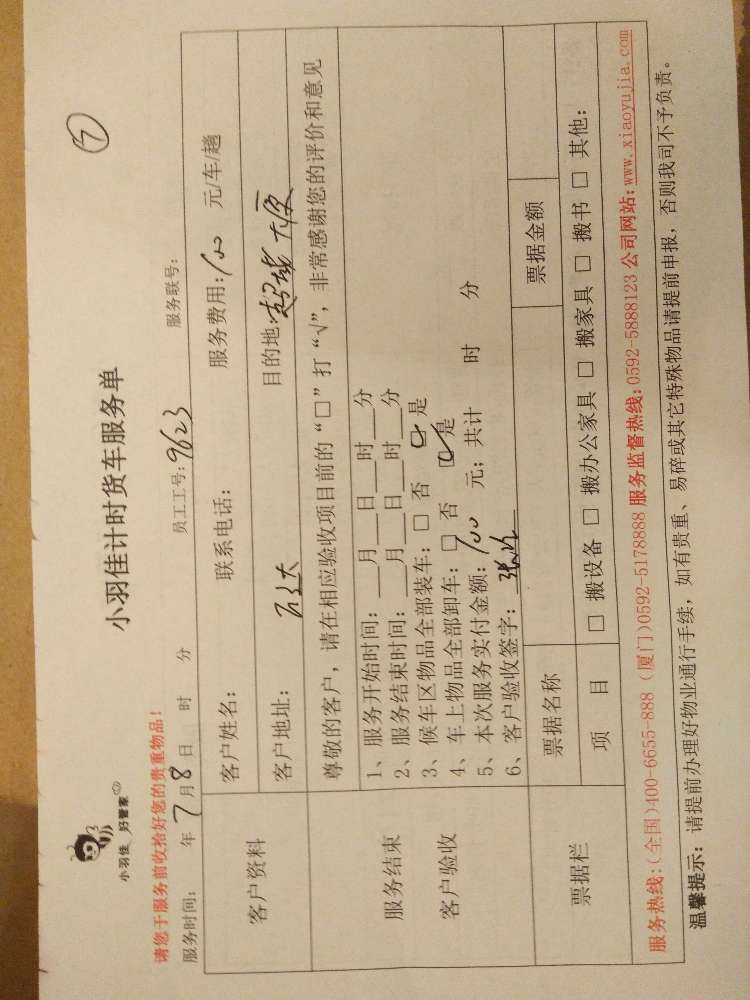 小羽佳 好管家
小羽佳计时货车服务单
⑦
请您于服务前收拾好您的贵重物品！
服务时间： 年 7月8日 时 分 员工工号：9623 服务联号：
客户资料
客户姓名： 联系电话： 服务费用：100 元/车/趟
客户地址： 目的地：
尊敬的客户，请在相应验收项目前的“□”打“√”，非常感谢您的评价和意见
服务结束
客户验收
1、服务开始时间：___月___日___时___分
2、服务结束时间：___月___日___时___分
3、候车区物品全部装车：□ 否 ☑ 是
4、车上物品全部卸车：□ 否 ☑ 是
5、本次服务实付金额：100 元；共计 时 分
6、客户验收签字：
票据栏
票据名称 票据金额
项 目 □ 搬设备 □ 搬办公家具 □ 搬家具 □ 搬书 □ 其他：
服务热线：(全国)400-6655-888 (厦门)0592-5178888 服务监督热线：0592-5888123 公司网站：www.xiaoyujia.com
温馨提示：请提前办理好物业通行手续，如有贵重、易碎或其它特殊物品请提前申报，否则我司不予负责。